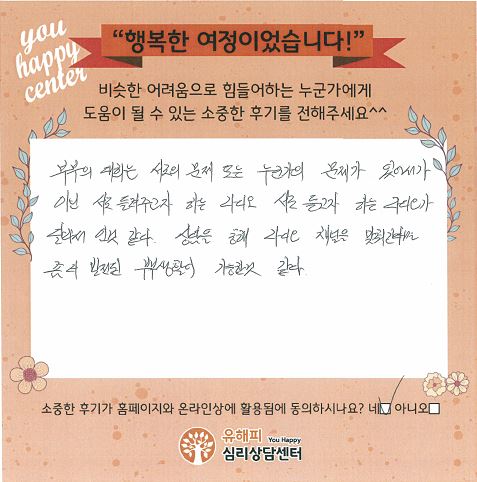 you
happy
center
“행복한 여정이었습니다!”
비슷한 어려움으로 힘들어하는 누군가에게
도움이 될 수 있는 소중한 후기를 전해주세요^^
부부의 대화는 서로의 문제 또는 누군가의 문제가 있어서가
아닌 서로 들려주고자 하는 라디오 서로 듣고자 하는 라디오가
달라서 인것 같다. 상담은 통해 라디오 채널은 맞춰간다면
좀 더 발전된 부부생활이 가능한것 같다.
소중한 후기가 홈페이지와 온라인상에 활용됨에 동의하시나요? 네 아니오
유해피 You Happy
심리상담센터